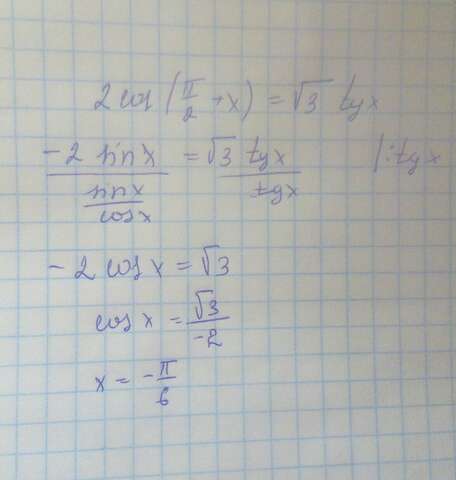 2 cos (π/2 + x) = √3 tgx
(-2 sin x)/(sin x/cos x) = (√3 tgx)/(tgx) |: tg x
- 2 cos x = √3
cos x = √3/-2
x = - π/6